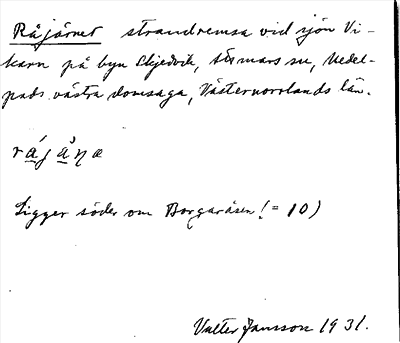 Råjärnet strandremsa vid sjön Vi-
karn på byn Skjedvik, Attmars sn, Medel-
pads västra domsaga, Västernorrlands län.
Ligger söder om Borgaråsen (= 10)
Valter Jansson 1931.